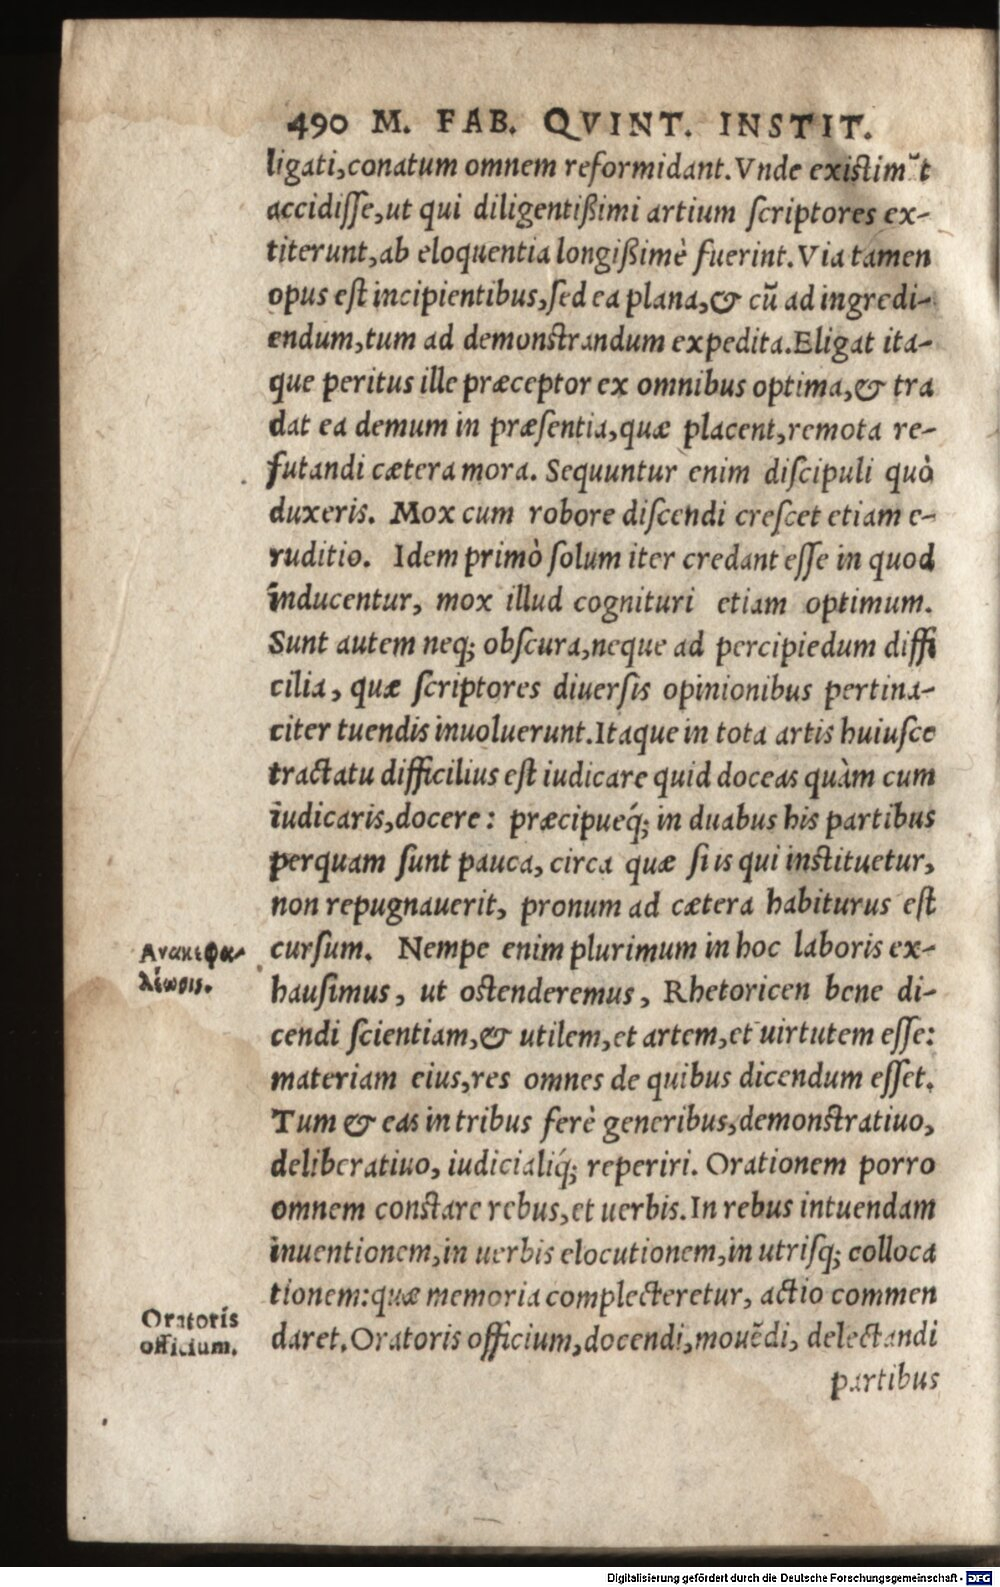 490 M. FAB. QVINT. INSTIT.
ligati,conatum omnem reformidant.Vnde existimūt
accidiſſe,ut qui diligentißimi artium ſcriptores ex-
titerunt,ab eloquentia longißimè fuerint.Via tamen
opus eſt incipientibus,ſed ea plana,& cū ad ingredi-
endum,tum ad demonſtrandum expedita.Eligat ita-
que peritus ille præceptor ex omnibus optima,& tra
dat ea demum in præſentia,quæ placent,remota re-
futandi cætera mora. Sequuntur enim diſcipuli quò
duxeris. Mox cum robore diſcendi creſcet etiam e-
ruditio. Idem primò ſolum iter credant eſſe in quod
inducentur, mox illud cognituri etiam optimum.
Sunt autem neq; obſcura,neque ad percipiedum diffi
cilia, quæ ſcriptores diuerſis opinionibus pertina-
citer tuendis inuoluerunt.Itaque in tota artis huiuſce
tractatu difficilius eſt iudicare quid doceas quàm cum
iudicaris,docere: præcipueq́; in duabus his partibus
perquam ſunt pauca, circa quæ ſi is qui inſtituetur,
non repugnauerit, pronum ad cætera habiturus eſt
curſum. Nempe enim plurimum in hoc laboris ex-
Ανακεφα-
λαίωσις.
hauſimus, ut oſtenderemus, Rhetoricen bene di-
cendi ſcientiam,& utilem,et artem,et uirtutem eſſe:
materiam eius,res omnes de quibus dicendum eſſet.
Tum & eas in tribus ferè generibus,demonſtratiuo,
deliberatiuo, iudicialiq́; reperiri. Orationem porro
omnem conſtare rebus,et uerbis.In rebus intuendam
inuentionem,in uerbis elocutionem,in utriſq; colloca
tionem:quæ memoria complecteretur, actio commen
Oratoris
officium.
daret.Oratoris officium,docendi,mouēdi, delectandi
partibus
Digitalisierung gefördert durch die Deutsche Forschungsgemeinschaft - DFG